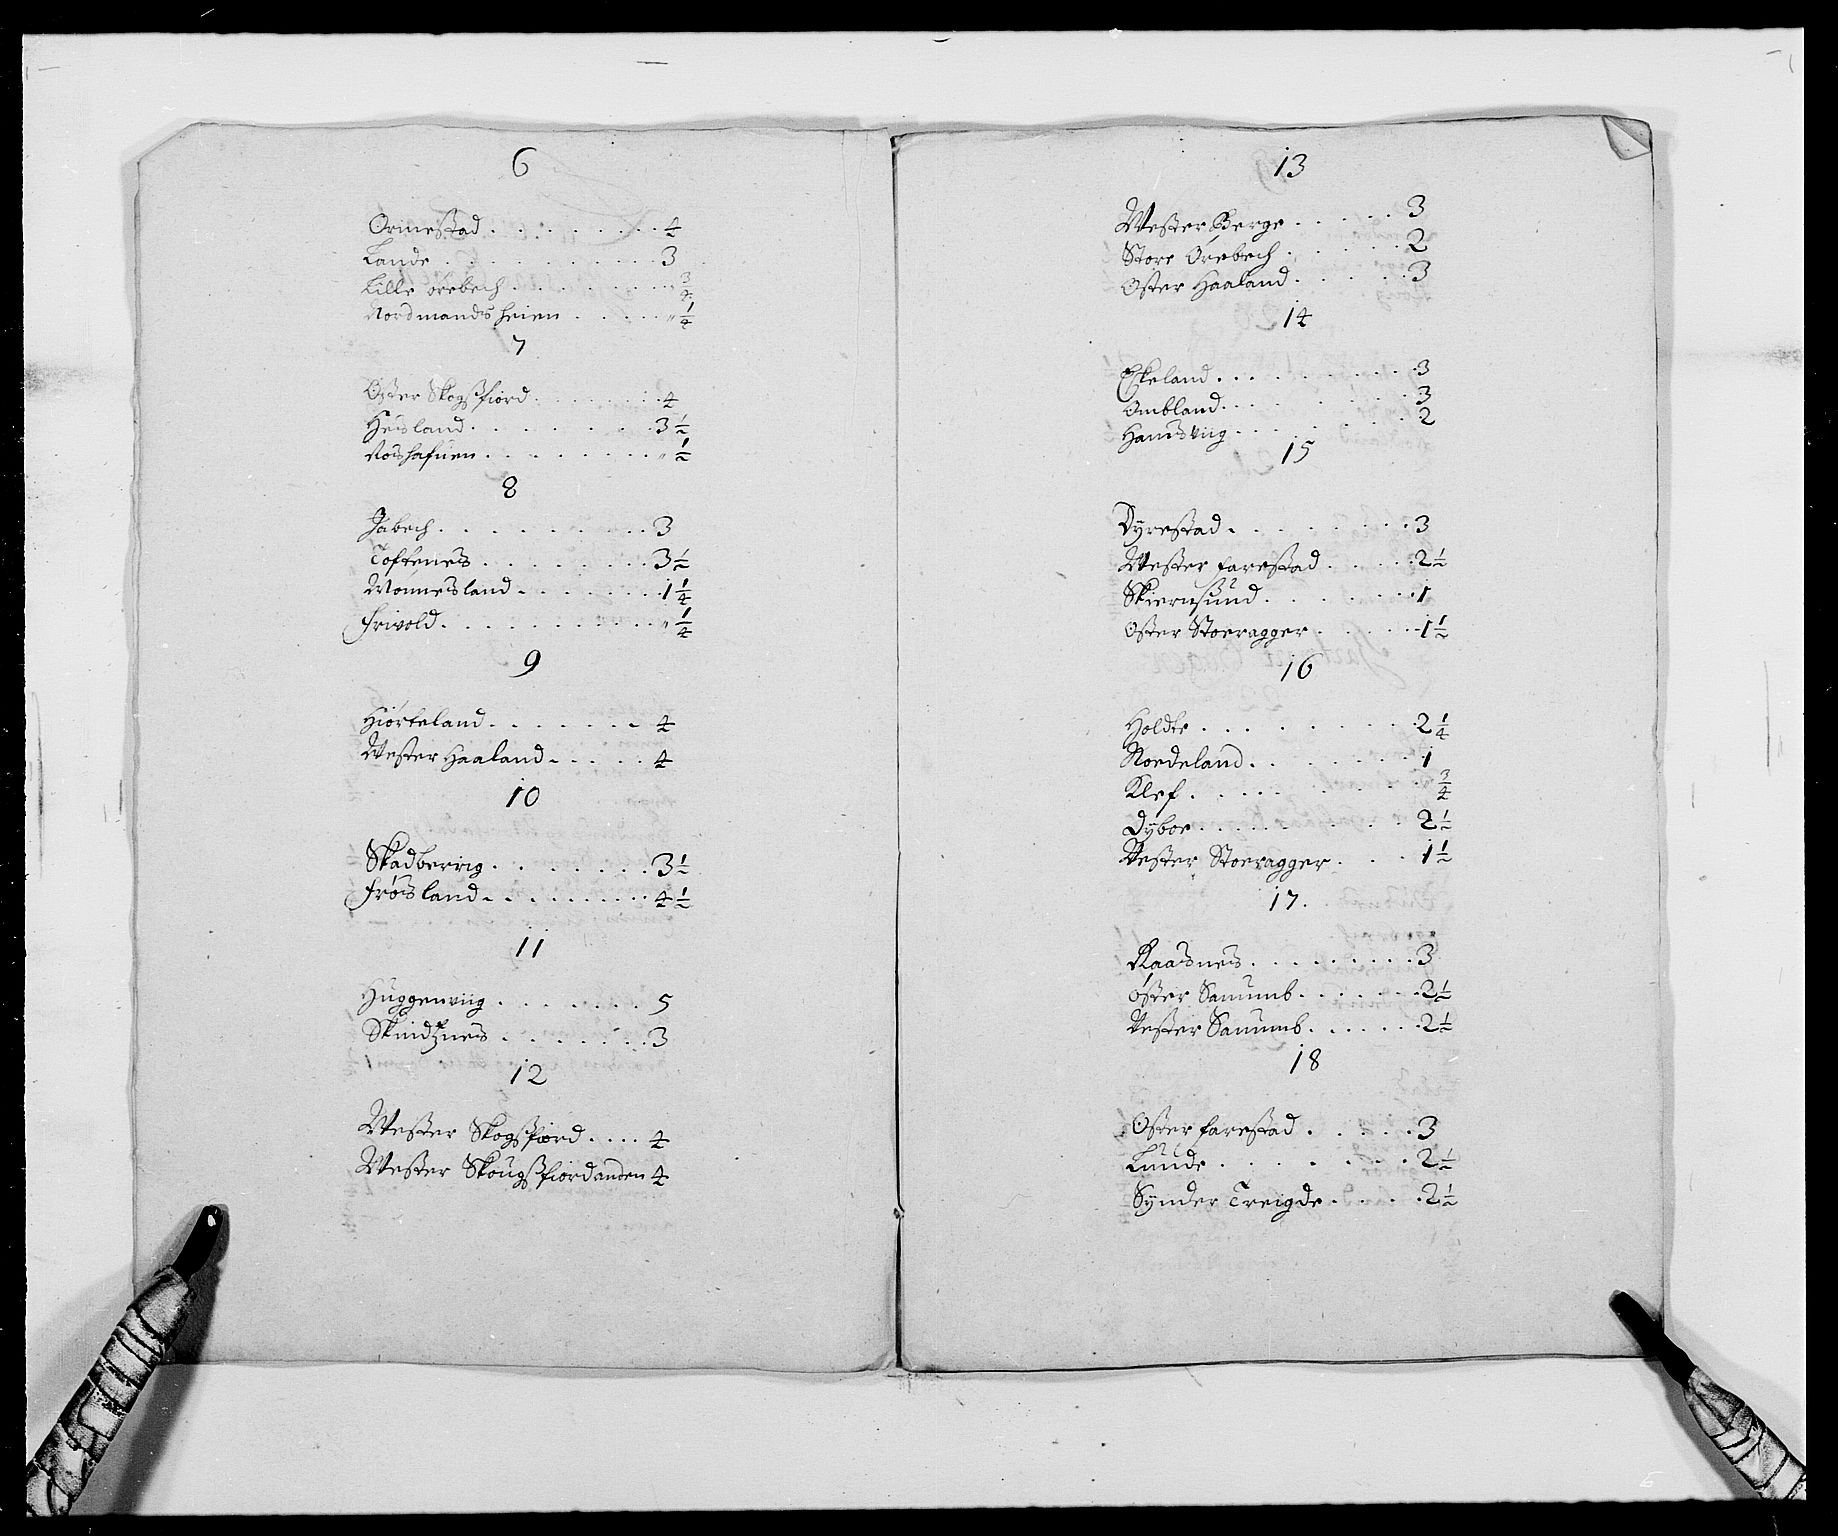 6
Ormestad . . . . . . . . 4
Lande . . . . . . . . . . 3
Lille örebech . . . . . . . . " 3/4
Nordmands heien . . . . . " 1/4
7
Oster Skogsfiord . . . . . . 4
Heisland . . . . . . . . 3 1/2
Roshafuen . . . . . . . . " 1/2
8
Jåbech . . . . . . . . . 3
Toftenes . . . . . . . . 3 1/2
Monnesland . . . . . . . 1 1/4
Frivold . . . . . . . . . . " 1/4
9
Hiorteland . . . . . . . 4
Wester Haaland . . . . . 4
10
Skadberrig . . . . . . . 3 1/2
Frøisland . . . . . . . . 4 1/2
11
Huggenwiig . . . . . . . 5
Skindtznes . . . . . . . 3
12
Wester Skogsfiord . . . . 4
Wester Skougsfiord anden 4
13
Wester Berge . . . . . 3
Store Örebech . . . . . 2
Oster Haaland . . . . . 3
14
Ekeland . . . . . . . . . 3
Ombland . . . . . . . . 3
Hamsviig . . . . . . . . 2
15
Dyrestad . . . . . . . . 3
Wester farestad . . . . . 2 1/2
Skiernsund . . . . . . . 1
Oster Stoeragger . . . . . 1 1/2
16
Holdte . . . . . . . . . 2 1/4
Noedeland . . . . . . . 1
Klef . . . . . . . . . 3/4
Dyboe . . . . . . . . . 2 1/2
Wester Stoeragger . . . . 1 1/2
17.
Raasnes . . . . . . . . . 3
Oster Sanumb . . . . . . 2 1/2
Vester Sanumb . . . . . . 2 1/2
18
Oster farestad . . . . . 3
Lunde . . . . . . . . 2 1/2
Synder Treigde . . . . . 2 1/2